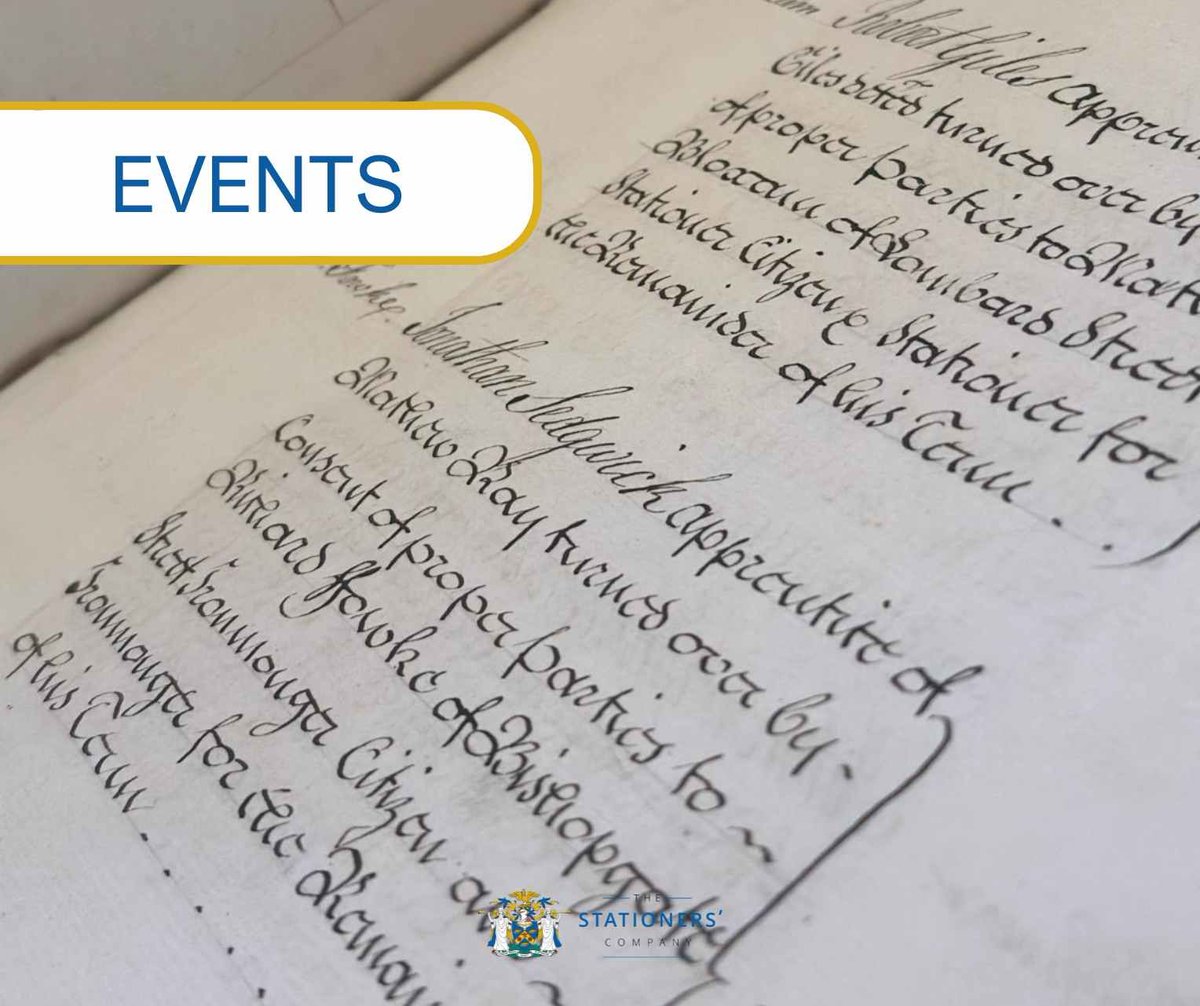 EVENTS
Robert Giles appren
Giles actõd turned over by
of proper parties to Mat
Bloxam of Lombard Street
Stationer Citizen & Stationer for
the Remainder of his Term.
Jonathan Sedgwick apprentice of
Mathew Kay turned over by
Consent of proper parties to
Richard ffowke of Bishopsgate
Street Ironmonger Citizen an
Ironmonger for the Remai
of his Term.
THE
STATIONERS'
COMPANY